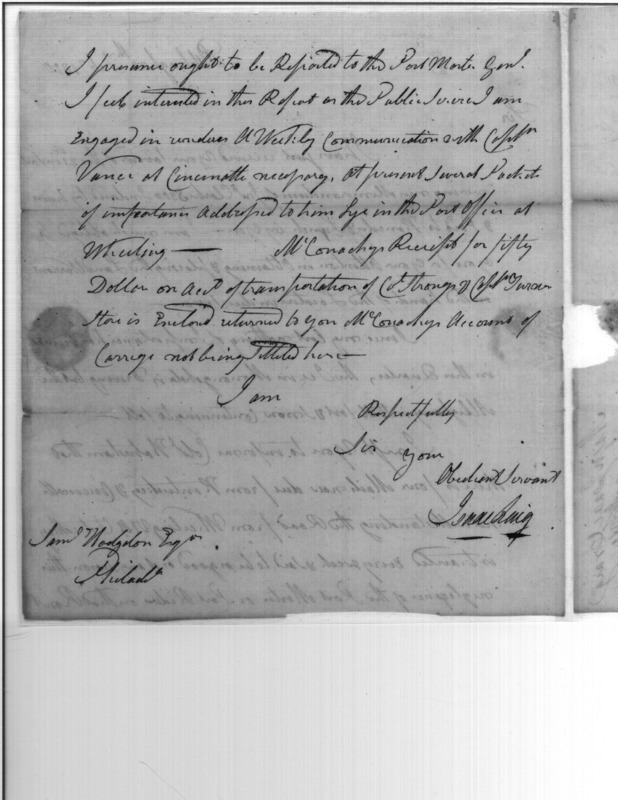 I presume ought to be Reported to the Post Master Genl.
I feel interested in this Report as the Public Service I am
Engaged in renders A Weekly Communication with Captn
Vance at Cincinatti necessary, at present Several Packets
of importance addressed to him Lye in the Post Office at
Wheeling — McConachys Receipt for fifty
Dollars on acct. of transportation of Col. Strongs & Captn
Store is Enclosed returned to you McConachys Account of
Carrige not being Settled here —
I am
Respectfully
Sir your
Obedient Servant
Isaac Craig
Saml. Hodgdon Esqr.
Philada.